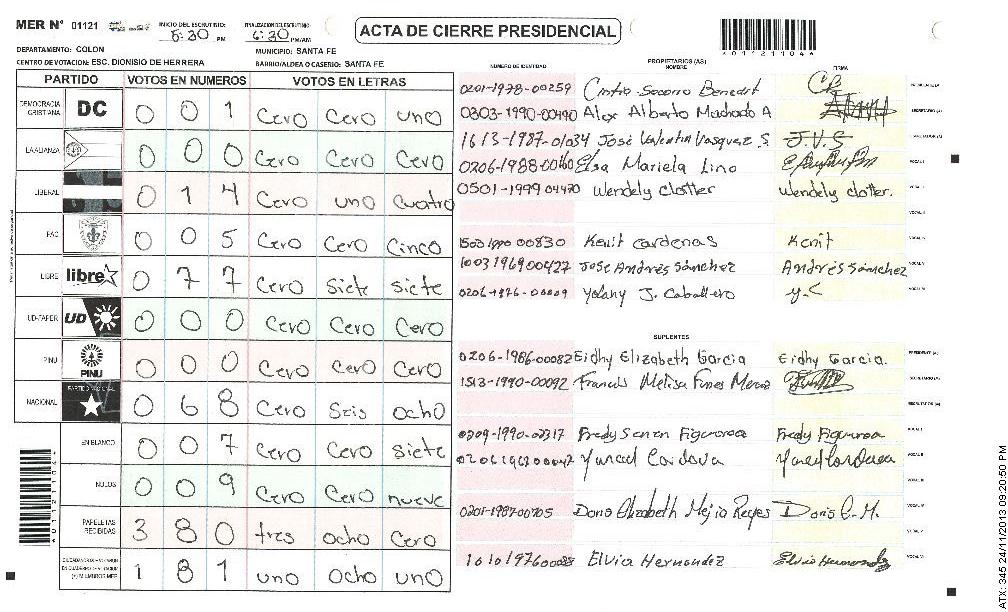 MER N° 01121 INICIO DEL ESCRUTINIO: 5:30 PM FINALIZACION DEL ESCRUTINIO: 6:30 PM/AM
ACTA DE CIERRE PRESIDENCIAL
DEPARTAMENTO: COLON MUNICIPIO: SANTA FE
CENTRO DE VOTACION: ESC. DIONISIO DE HERRERA BARRIO/ALDEA O CASERIO: SANTA FE
PARTIDO VOTOS EN NUMEROS VOTOS EN LETRAS
DEMOCRACIA CRISTIANA DC 0 0 1 Cero Cero uno
LA ALIANZA 0 0 0 Cero Cero Cero
LIBERAL 0 1 4 Cero uno cuatro
PAC 0 0 5 Cero Cero Cinco
LIBRE libre 0 7 7 Cero Siete siete
UD-FAPER UD 0 0 0 Cero Cero Cero
PINU PINU 0 0 0 Cero Cero Cero
NACIONAL PARTIDO NACIONAL 0 6 8 Cero Seis ocho
EN BLANCO 0 0 7 Cero Cero siete
NULOS 0 0 9 Cero Cero nueve
PAPELETAS RECIBIDAS 3 8 0 tres ocho Cero
1 8 1 uno ocho uno
NUMERO DE IDENTIDAD PROPIETARIOS (AS) NOMBRE FIRMA
0201-1978-00259 Benedit
0303-1990-00490 Alex Alberto Machado A
1613-1987-01034 José Valentin Vasquez S. J.V.S
0206-1988-00160 Elsa Mariela Lino
0501-1999 04470 Wendely Clotter Wendely clotter.
00830 Kenit Cardenas Kenit
1003196900427 Jose Andrés Sánchez Andrés Sánchez
0206-1976-00009 Yolany J. Caballero
SUPLENTES
0206-1986-00082 Eidhy Elizabeth Garcia Eidhy Garcia.
1513-1990-00092 Melisa Funes
0209-1990-02317 Fredy Figueroa Fredy Figueroa
Cordova
0201-1987-00705 Doris Elizabeth Mejia Reyes Doris E. M.
Elvia Hernandez Elvia Hernandez
ATX: 345 24/11/2013 09:20:50 PM